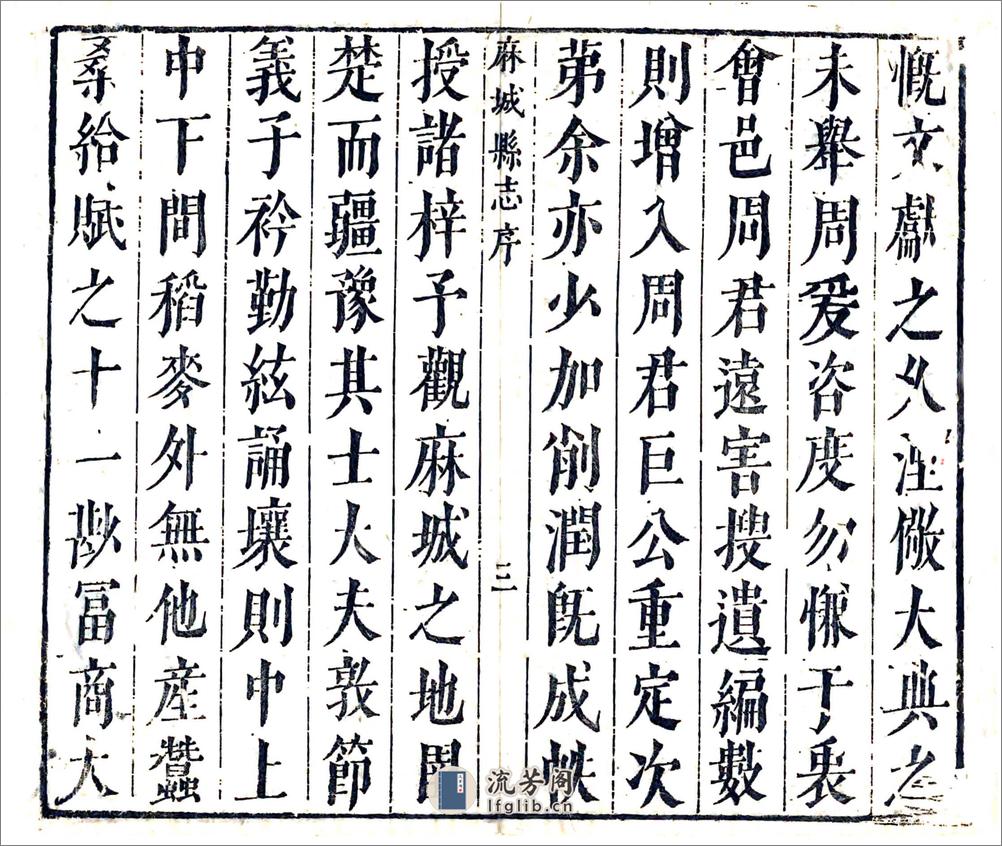 慨文獻之久湮儆大典之
未舉周爰咨度勿慊于衷
會邑周君遠害搜遺編數
則增入周君巨公重定次
第余亦少加削潤既成帙
麻城縣志序
三
授諸梓予觀麻城之地
楚而疆豫其士大夫敦節
義子衿勤絃誦壤則中上
中下間稻麥外無他產蠶
桑給賦之十一尠冨商大
流芳阁
lfglib.cn